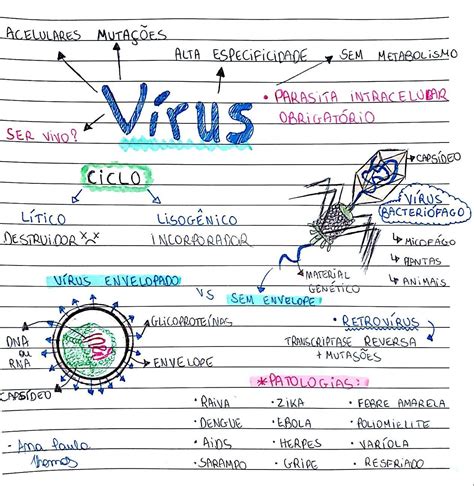 ACELULARES MUTAÇÕES
ALTA ESPECIFICIDADE → SEM METABOLISMO
Vírus
• PARASITA INTRACELULAR
OBRIGATÓRIO
SER VIVO?
CAPSÍDEO
CICLO
VÍRUS
BACTERIÓFAGO
LÍTICO
LISOGÊNICO
DESTRUIDOR
INCORPORADOR
→ MICÓFAGO
→ PLANTAS
→ ANIMAIS
MATERIAL
GENÉTICO
VÍRUS ENVELOPADO
VS
SEM ENVELOPE
GLICOPROTEÍNAS
• RETROVÍRUS
TRANSCRIPTASE REVERSA
+ MUTAÇÕES
DNA
ou
RNA
ENVELOPE
CAPSÍDEO
*PATOLOGIAS:
• RAIVA
• ZIKA
• FEBRE AMARELA
• DENGUE
• EBOLA
• POLIOMIELITE
• AIDS
• HERPES
• VARÍOLA
• SARAMPO
• GRIPE
• RESFRIADO
• Ana Paula
Thomas